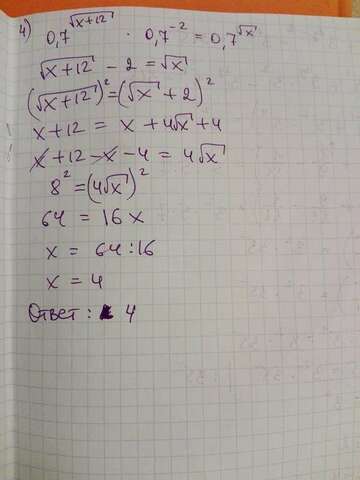 4) 0,7^√(x+12) · 0,7^-2 = 0,7^√x
√(x+12) - 2 = √x
(√(x+12))² = (√x + 2)²
x+12 = x + 4√x + 4
x + 12 - x - 4 = 4√x
8² = (4√x)²
64 = 16x
x = 64:16
x = 4
Ответ: 4